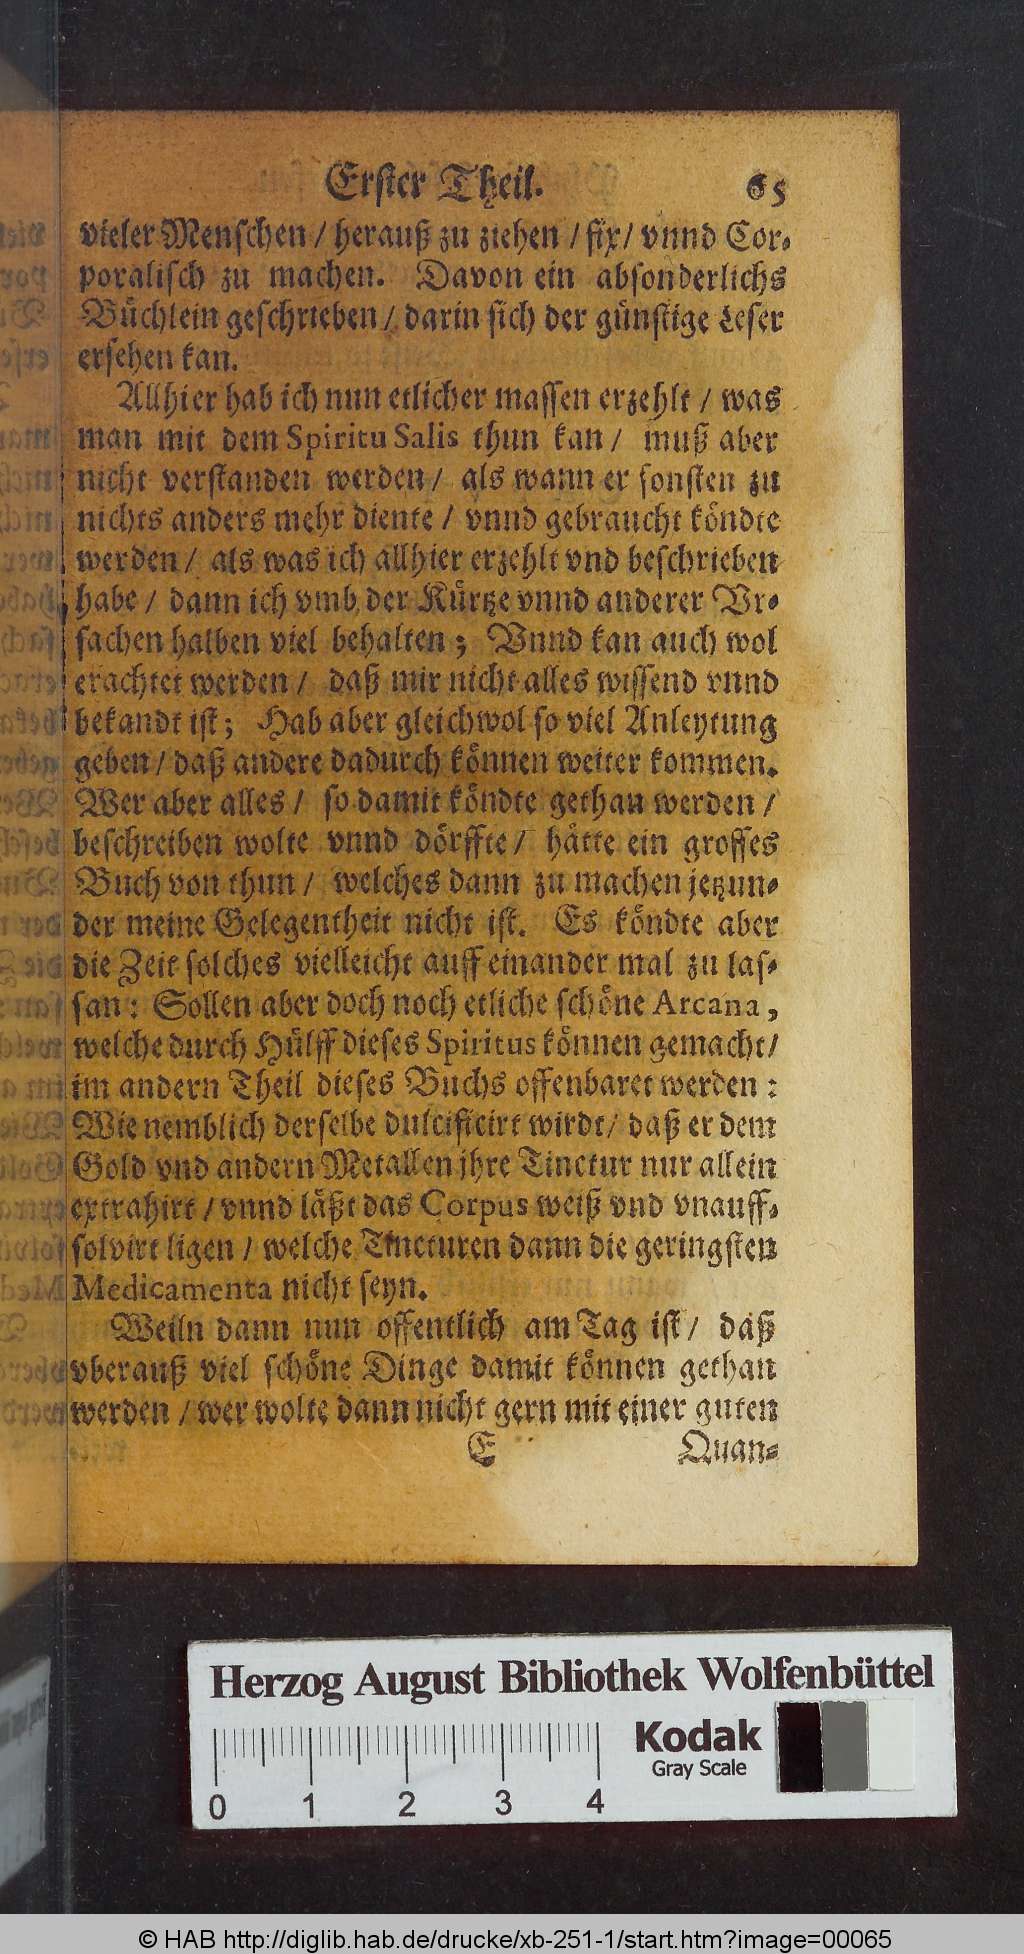 Erster Theil. 65
vieler Menschen / herauß zu ziehen / fix / vnnd Cor-
poralisch zu machen. Davon ein absonderlichs
Büchlein geschrieben / darin sich der günstige Leser
ersehen kan.
Allhier hab ich nun etlicher massen erzehlt / was
man mit dem Spiritu Salis thun kan / muß aber
nicht verstanden werden / als wann er sonsten zu
nichts anders mehr diente / vnnd gebraucht köndte
werden / als was ich allhier erzehlt vnd beschrieben
habe / dann ich vmb der Kürtze vnnd anderer Vr-
sachen halben viel behalten; Vnnd kan auch wol
erachtet werden / daß mir nicht alles wissend vnnd
bekandt ist; Hab aber gleichwol so viel Anleytung
geben / daß andere dadurch können weiter kommen.
Wer aber alles / so damit köndte gethan werden /
beschreiben wolte vnnd dörffte / hätte ein grosses
Buch von thun / welches dann zu machen jetzun-
der meine Gelegentheit nicht ist. Es köndte aber
die Zeit solches vielleicht auff einander mal zu las-
san: Sollen aber doch noch etliche schöne Arcana,
welche durch Hülff dieses Spiritus können gemacht /
im andern Theil dieses Buchs offenbaret werden:
Wie nemblich derselbe dulcificirt wirdt / daß er dem
Gold vnd andern Metallen jhre Tinctur nur allein
extrahirt / vnnd läßt das Corpus weiß vnd vnauff-
solvirt ligen / welche Tincturen dann die geringsten
Medicamenta nicht seyn.
Weiln dann nun offentlich am Tag ist / daß
vberauß viel schöne Dinge damit können gethan
werden / wer wolte dann nicht gern mit einer guten
E Quan-
Herzog August Bibliothek Wolfenbüttel
Kodak
Gray Scale
0 1 2 3 4
© HAB http://diglib.hab.de/drucke/xb-251-1/start.htm?image=00065